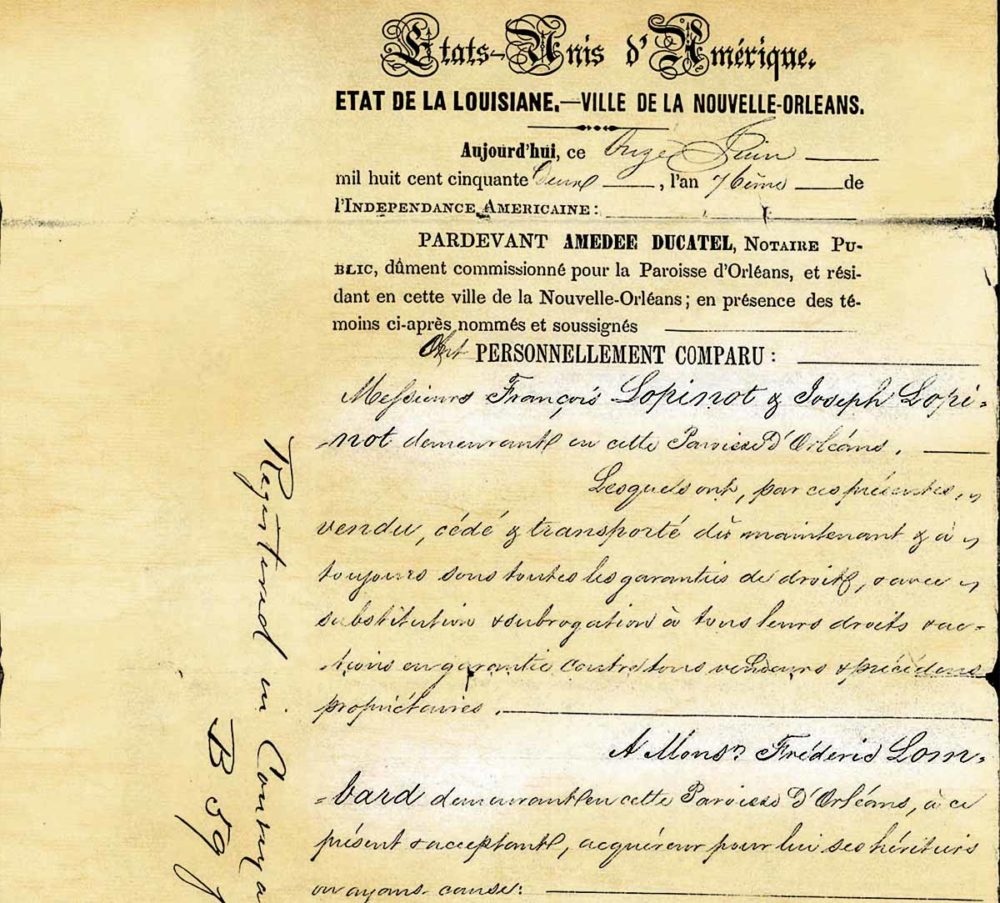 Etats-Unis d'Amérique.
ETAT DE LA LOUISIANE.—VILLE DE LA NOUVELLE-ORLEANS.
Aujourd'hui, ce Onze Juin
mil huit cent cinquante Deux, l'an 76ème de
l'INDEPENDANCE AMERICAINE:
PARDEVANT AMEDEE DUCATEL, NOTAIRE PU-
BLIC, dûment commissionné pour la Paroisse d'Orléans, et rési-
dant en cette ville de la Nouvelle-Orléans; en présence des té-
moins ci-après nommés et soussignés
Ont PERSONNELLEMENT COMPARU:
Messieurs François Lopinot & Joseph Lopi-
-not demeurant en cette Paroisse D'Orléans.
Lesquels ont, par ces présentes,
vendu, cédé & transporté dès maintenant & à
toujours sous toutes les garanties de droit, & avec
substitution & subrogation à tous leurs droits & ac-
-tions en garantie contre tous vendeurs & précédens
propriétaires.
A Monsr Fréderic Lom-
-bard demeurant en cette Paroisse D'Orléans, à ce
présent & acceptant, acquéreur pour lui ses héritiers
ou ayans cause:
Registered in Conveya
B 59 f